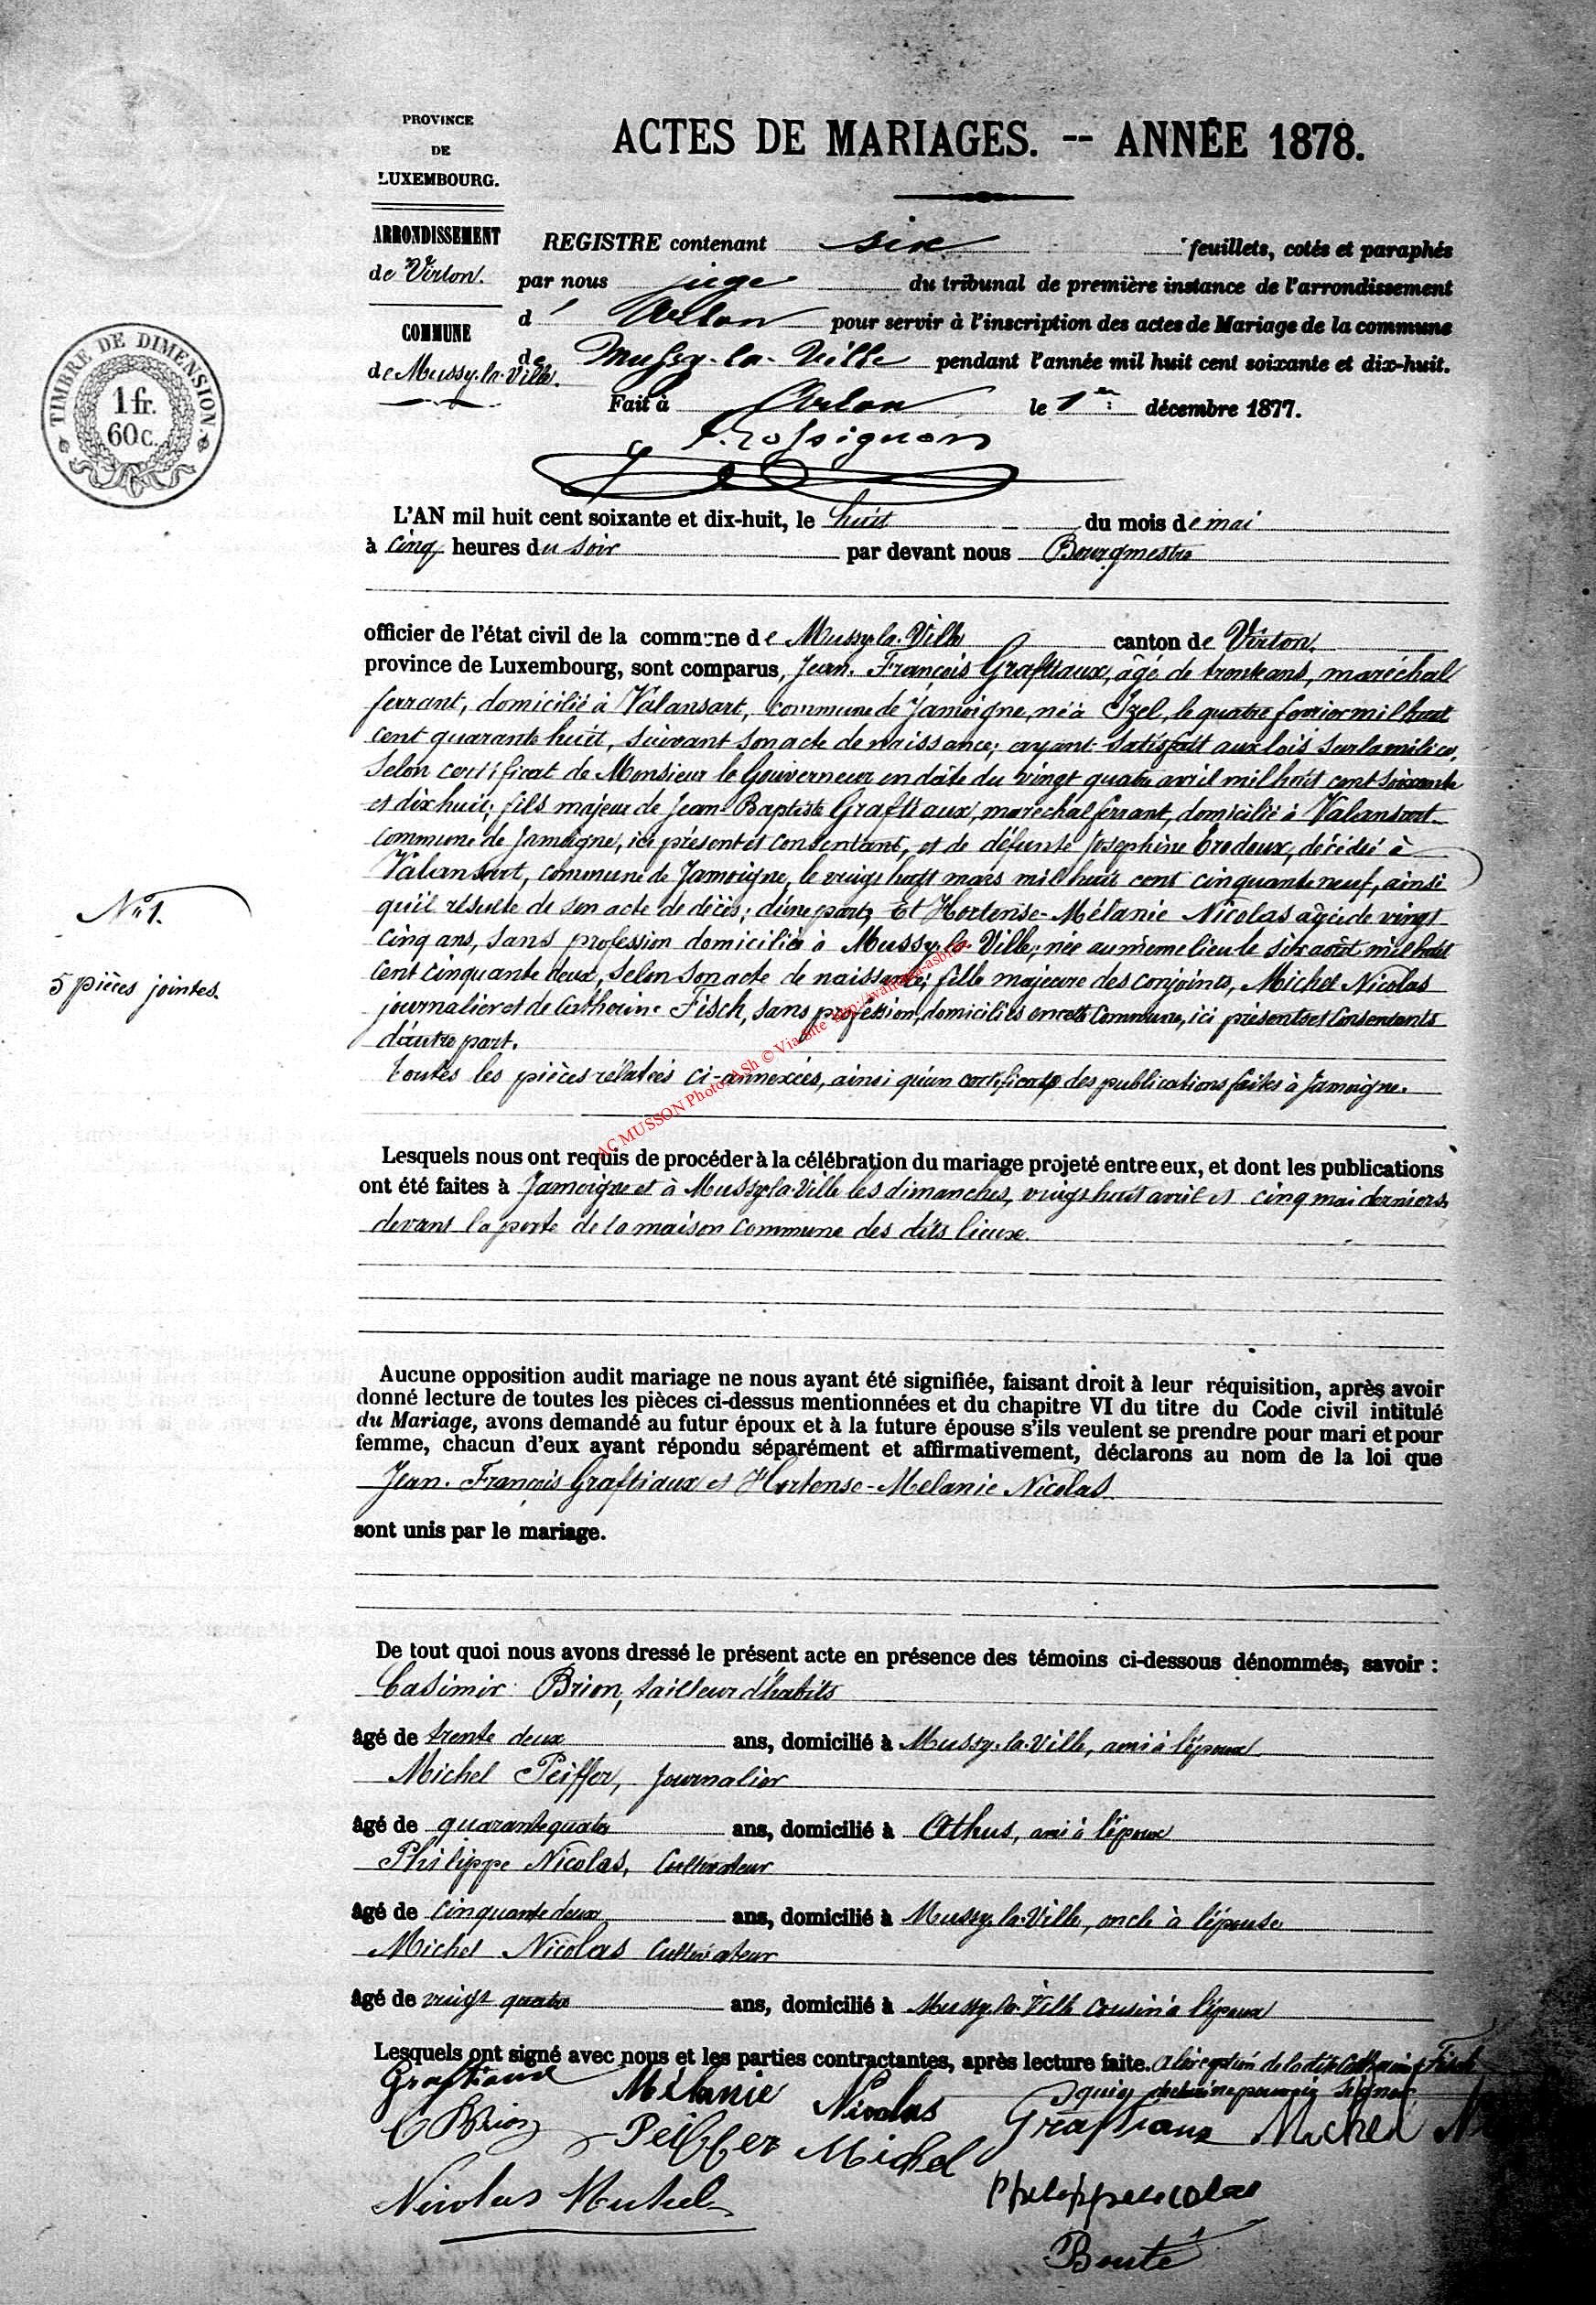 PROVINCE
DE
LUXEMBOURG.
ACTES DE MARIAGES. -- ANNÉE 1878.
ARRONDISSEMENT
de Virton.
COMMUNE
de Mussy-la-Ville.
REGISTRE contenant six feuillets, cotés et paraphés
par nous juge du tribunal de première instance de l'arrondissement
d' Arlon pour servir à l'inscription des actes de Mariage de la commune
de Mussy-la-Ville pendant l'année mil huit cent soixante et dix-huit.
Fait à Arlon le 1er décembre 1877.
TIMBRE DE DIMENSION.
1 fr.
60 c.
L'AN mil huit cent soixante et dix-huit, le huit du mois de mai
à cinq heures du soir par devant nous Bourgmestre
officier de l'état civil de la commune de Mussy-la-Ville canton de Virton.
province de Luxembourg, sont comparus, Jean-François Graftiaux, âgé de trente ans, maréchal
ferrant, domicilié à Valansart, commune de Jamoigne, né à Izel, le quatre février mil huit
cent quarante huit, suivant son acte de naissance; ayant satisfait aux lois sur la milice,
selon certificat de Monsieur le Gouverneur en date du vingt quatre avril mil huit cent soixante
et dix huit; fils majeur de Jean-Baptiste Graftiaux, maréchal ferrant, domicilié à Valansart
commune de Jamoigne, ici présent et consentant, et de défunte Joséphine décédée à
Valansart, commune de Jamoigne, le vingt huit mars mil huit cent cinquante neuf, ainsi
qu'il résulte de son acte de décès; d'une part; Et Hortense-Mélanie Nicolas âgée de vingt
cinq ans, sans profession domiciliée à Mussy-la-Ville, née au même lieu le six août mil huit
cent cinquante deux, selon son acte de naissance; fille majeure des conjoints, Michel Nicolas
journalier et de Catherine Fisch, sans profession, domiciliés en cette commune, ici présents et consentants
d'autre part.
toutes les pièces rélatées ci-annexées, ainsi qu'un certificat des publications faites à Jamoigne.
N° 1.
5 pièces jointes.
AC MUSSON Photo ASh © Via Site
Lesquels nous ont requis de procéder à la célébration du mariage projeté entre eux, et dont les publications
ont été faites à Jamoigne et à Mussy-la-Ville les dimanches, vingt huit avril et cinq mai derniers
devant la porte de la maison commune des dits lieux.
Aucune opposition audit mariage ne nous ayant été signifiée, faisant droit à leur réquisition, après avoir
donné lecture de toutes les pièces ci-dessus mentionnées et du chapitre VI du titre du Code civil intitulé
du Mariage, avons demandé au futur époux et à la future épouse s'ils veulent se prendre pour mari et pour
femme, chacun d'eux ayant répondu séparément et affirmativement, déclarons au nom de la loi que
Jean-François Graftiaux et Hortense-Mélanie Nicolas
sont unis par le mariage.
De tout quoi nous avons dressé le présent acte en présence des témoins ci-dessous dénommés, savoir :
Casimir Brion, tailleur d'habits
âgé de trente deux ans, domicilié à Mussy-la-Ville, ami à l'époux
Michel Peiffer, journalier
âgé de quarante quatre ans, domicilié à Athus, ami à l'époux
Philippe Nicolas, cultivateur
âgé de cinquante deux ans, domicilié à Mussy-la-Ville, oncle à l'épouse
Michel Nicolas cultivateur
âgé de vingt quatre ans, domicilié à Mussy-la-Ville cousin à l'époux
Lesquels ont signé avec nous et les parties contractantes, après lecture faite. A l'exception de la dite Catherine Fisch
qui a déclaré ne pouvoir signer.
Graftiaux Mélanie Nicolas
C Brion Peiffer Michel Graftiaux Michel
Nicolas Michel Philippe Nicolas
Bouté